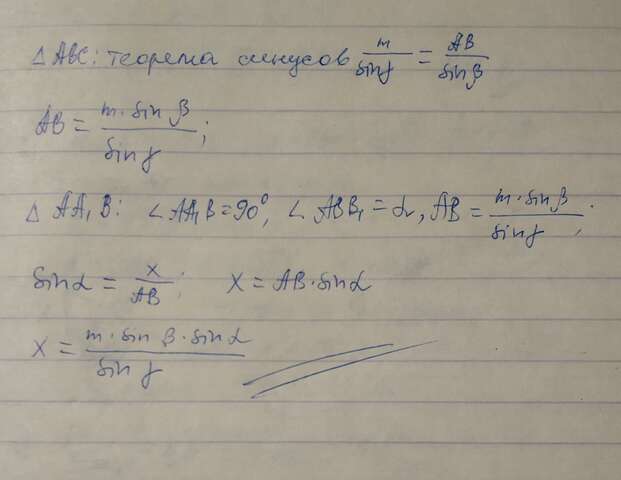 △ ABC: теорема синусов m/sinγ = AB/sinβ
AB = m·sin β/sin γ;
△ AA₁B: ∠AA₁B=90°, ∠ABB₁=α, AB = m·sinβ/sinγ;
sinα = x/AB; X = AB·sinα
X = m·sin β·sinα/sin γ